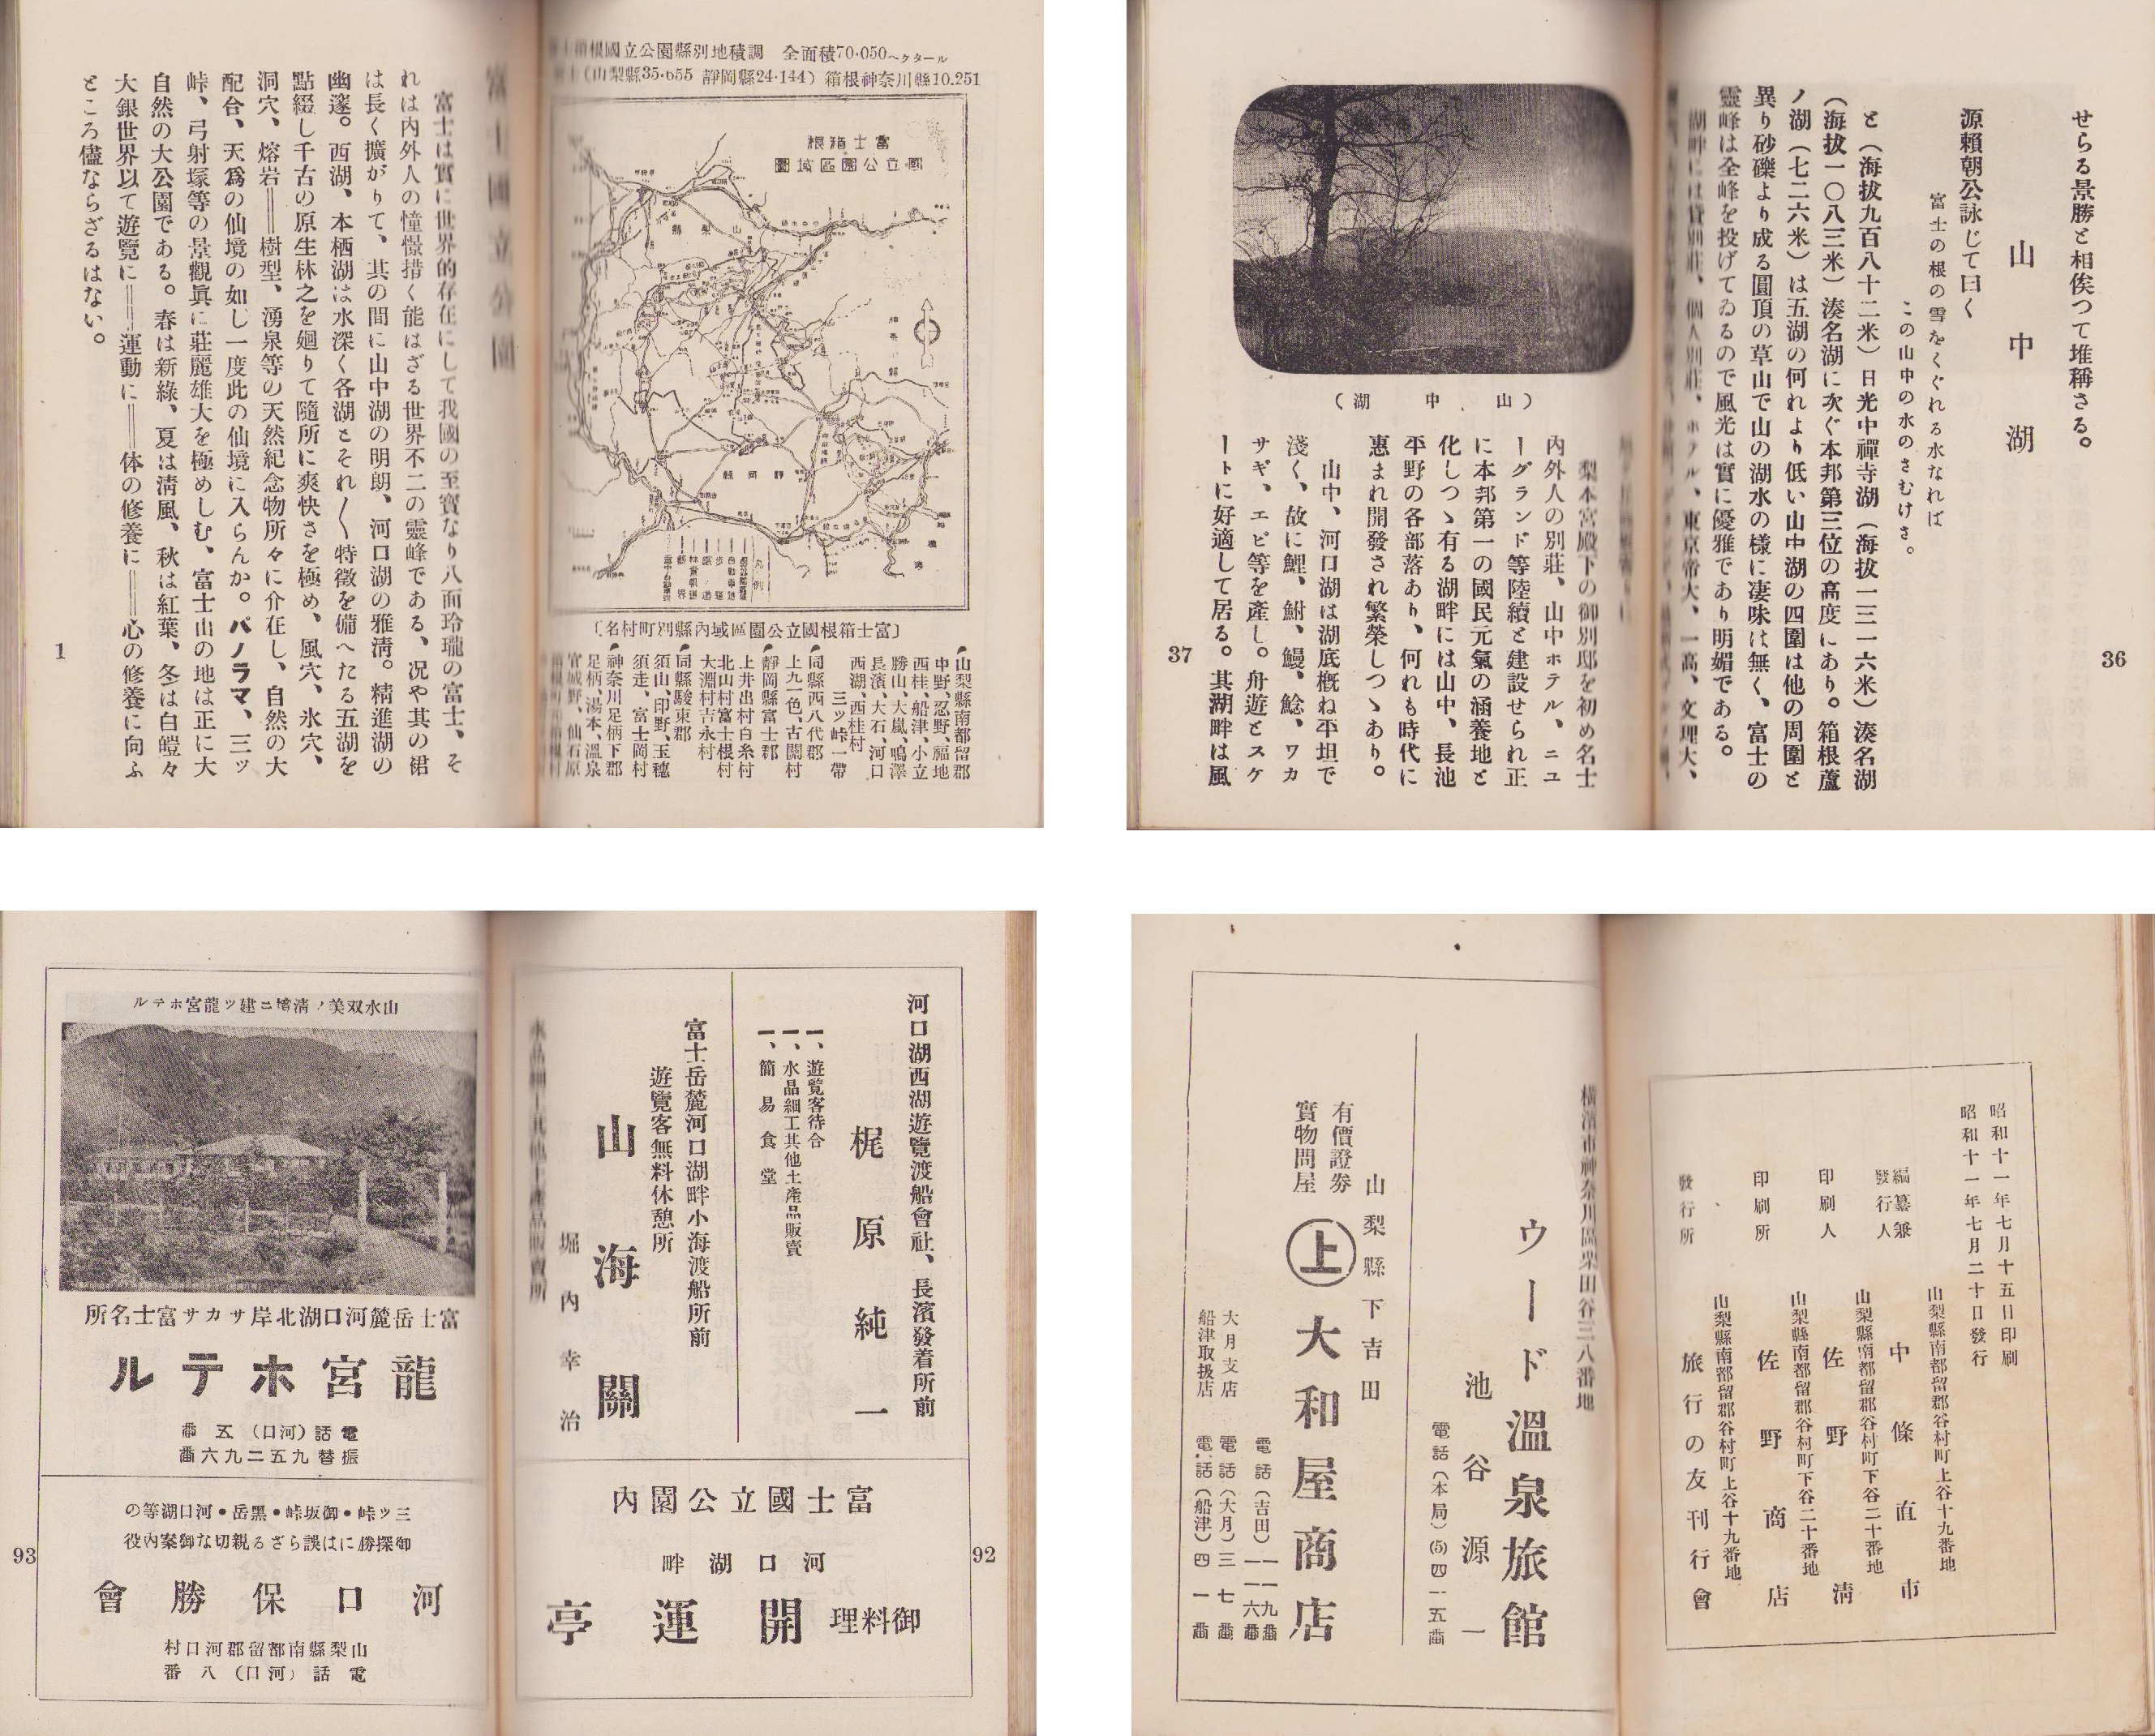 箱根國立公園縣別地積調 全面積70.050ヘクタール
(山梨縣35.655 靜岡縣24.144) 箱根神奈川縣10.251
富士箱根
國立公園區域圖
〔富士箱根國立公園區域內縣別町村名〕
山梨縣南都留郡
中野、忍野、福地
西桂、船津、小立
勝山、大嵐、鳴澤
長濱、大石、河口
西湖、西桂村
三ッ峠一帶
同縣西八代郡
上九一色、古關村
靜岡縣富士郡
上井出村白糸村
北山村富士根村
大淵村吉永村
同縣駿東郡
須山、印野、玉穗
須走、富士岡村
神奈川足柄下郡
足柄、湯本、溫泉
宮城野、仙石原
富士國立公園
富士は實に世界的存在にして我國の至寶なり八面玲瓏の富士、そ
れは內外人の憧憬措く能はざる世界不二の靈峰である、況や其の裙
は長く擴がりて、其の間に山中湖の明朗、河口湖の雅淸。精進湖の
幽邃。西湖、本栖湖は水深く各湖とそれ〲特徵を備へたる五湖を
點綴し千古の原生林之を廻りて隨所に爽快さを極め、風穴、氷穴、
洞穴、熔岩＝樹型、湧泉等の天然紀念物所々に介在し、自然の大
配合、天爲の仙境の如し一度此の仙境に入らんか。パノラマ、三ッ
峠、弓射塚等の景觀眞に莊麗雄大を極めしむ、富士山の地は正に大
自然の大公園である。春は新綠、夏は淸風、秋は紅葉、冬は白皚々
大銀世界以て遊覽に＝運動に＝体の修養に＝心の修養に向ふ
ところ儘ならざるはない。
1
せらる景勝と相俟つて堆稱さる。
山中湖
源賴朝公詠じて曰く
富士の根の雪をくぐれる水なれば
この山中の水のさむけさ。
と(海拔九百八十二米)日光中禪寺湖(海拔一三一六米)湊名湖
(海拔一〇八三米)湊名湖に次ぐ本邦第三位の高度にあり。箱根蘆
ノ湖(七二六米)は五湖の何れより低い山中湖の四圍は他の周圍と
異り砂礫より成る圓頂の草山で山の湖水の樣に凄味は無く、富士の
靈峰は全峰を投げてゐるので風光は實に優雅であり明媚である。
湖畔には貸別莊、個人別莊、ホテル、東京帝大、一高、文理大、
36
(山中湖)
梨本宮殿下の御別邸を初め名士
內外人の別莊、山中ホテル、ニユ
ーグランド等陸續と建設せられ正
に本邦第一の國民元氣の涵養地と
化しつゝ有る湖畔には山中、長池
平野の各部落あり、何れも時代に
惠まれ開發され繁榮しつゝあり。
山中、河口湖は湖底槪ね平坦で
淺く、故に鯉、鮒、鰻、鯰、ワカ
サギ、エビ等を產し。舟遊とスケ
ートに好適して居る。其湖畔は風
37
河口湖西湖遊覽渡船會社、長濱發着所前
梶原純一
一、遊覽客待合
一、水晶細工其他土產品販賣
一、簡易食堂
富士岳麓河口湖畔小海渡船所前
遊覽客無料休憩所
山海關
堀內幸治
水晶細工其他土產品販賣所
富士國立公園內
河口湖畔
御料理 開運亭
92
山水双美ノ淸境ニ建ツ龍宮ホテル
富士岳麓河口湖北岸サカサ富士名所
龍宮ホテル
電話(河口)五番
振替九五二九六番
三ッ峠・御坂峠・黑岳・河口湖等の
御探勝には誤らざる親切な御案內役
河口保勝會
山梨縣南都留郡河口村
電話(河口)八番
93
昭和十一年七月十五日印刷
昭和十一年七月二十日發行
山梨縣南都留郡谷村町上谷十九番地
編纂兼
發行人 中條直市
山梨縣南都留郡谷村町下谷二十番地
印刷人 佐野淸
山梨縣南都留郡谷村町下谷二十番地
印刷所 佐野商店
山梨縣南都留郡谷村町上谷十九番地
發行所 旅行の友刊行會
橫濱市神奈川區栗田谷三八番地
ウード溫泉旅館
池谷源一
電話(本局)(5)四一五番
山梨縣下吉田
有價證券
實物問屋
上 大和屋商店
電話(吉田)一一九番
一一六番
大月支店 電話(大月)三七番
船津取扱店 電話(船津)四一番